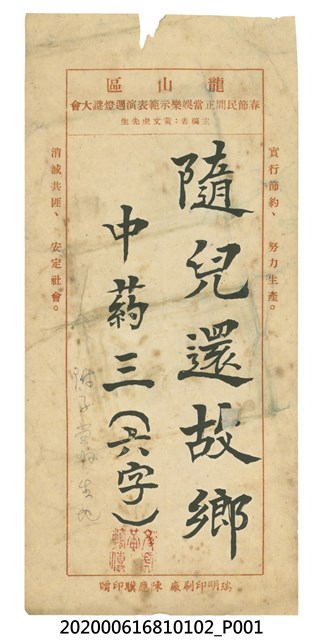 龍山區
春節民間正當娛樂示範表演週燈謎大會
主編者：黃文虎先生
實行節約、努力生產。
隨兒還故鄉
中药三（六字）
附子當歸生地
消滅共匪、安定社會。
瑞明印刷廠 陳應騏印贈
202000616810102_P001